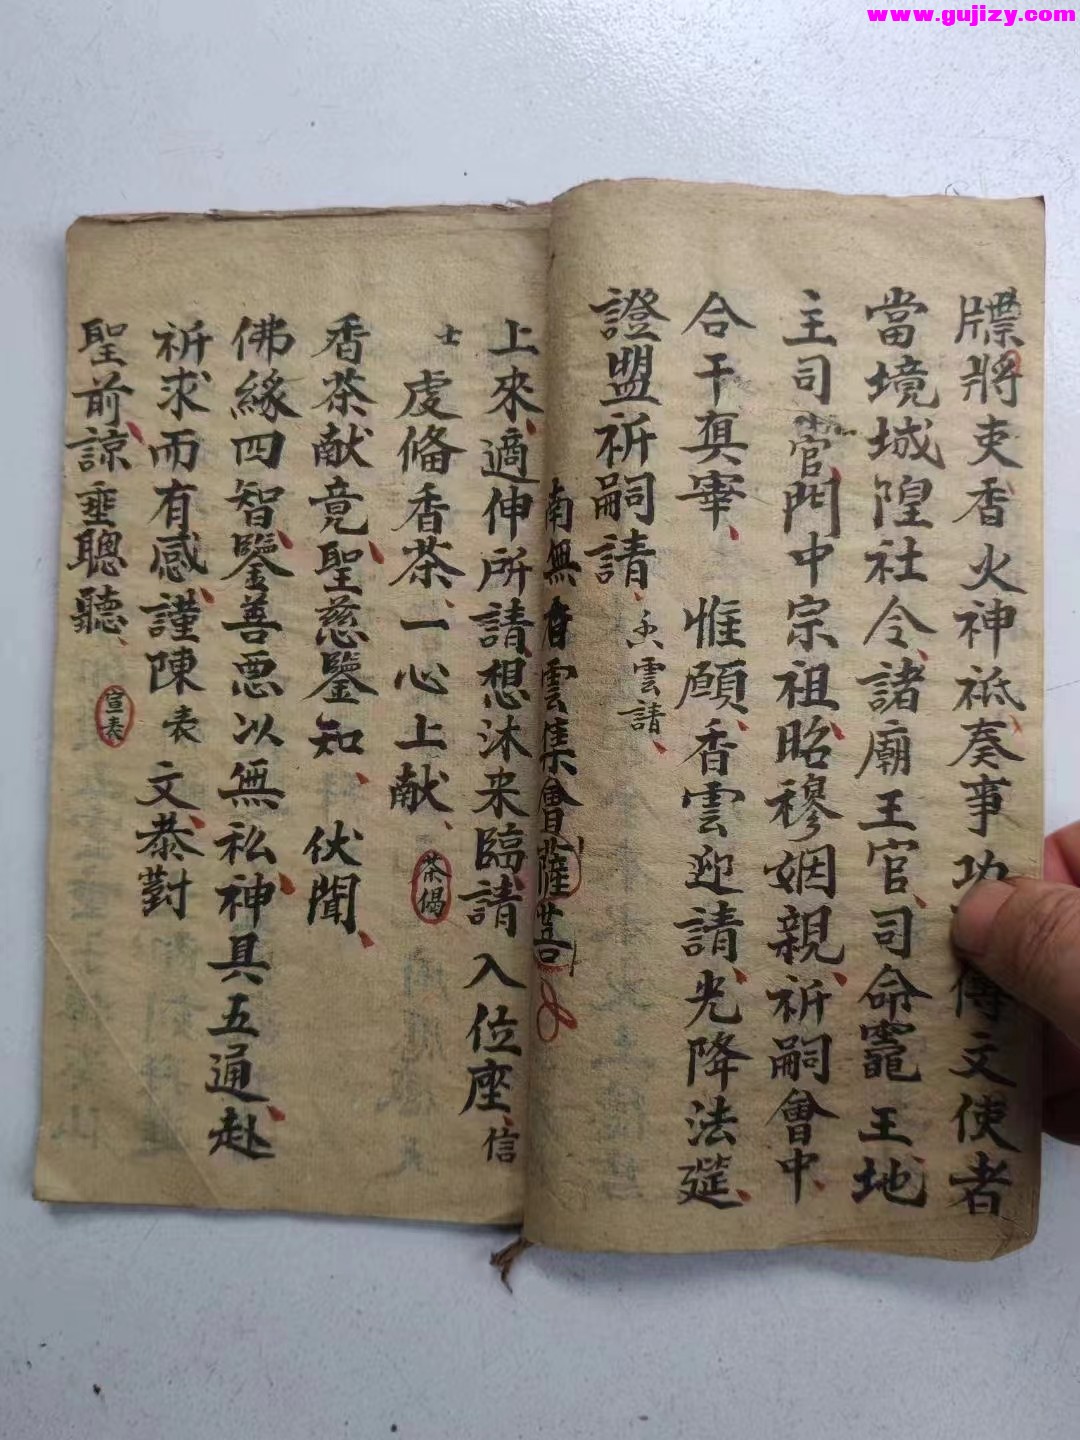 www.gujizy.com
牒將吏香火神祗奏事功傳文使者
當境城隍社令諸廟王官司命竈王地
主司官門中宗祖昭穆姻親祈嗣會中
合干真宰 惟願香雲迎請光降法筵
證盟祈嗣請 香雲請
南無香雲集會薩菩
上來適伸所請想沐来臨請入位座信
士 虔俻香茶一心上献 茶偈
香茶献竟聖慈鑒知 伏聞
佛緣四智鑒善悪以無私神具五通赴
祈求而有感謹陳表文恭對
聖前諒垂聰聽 宣表